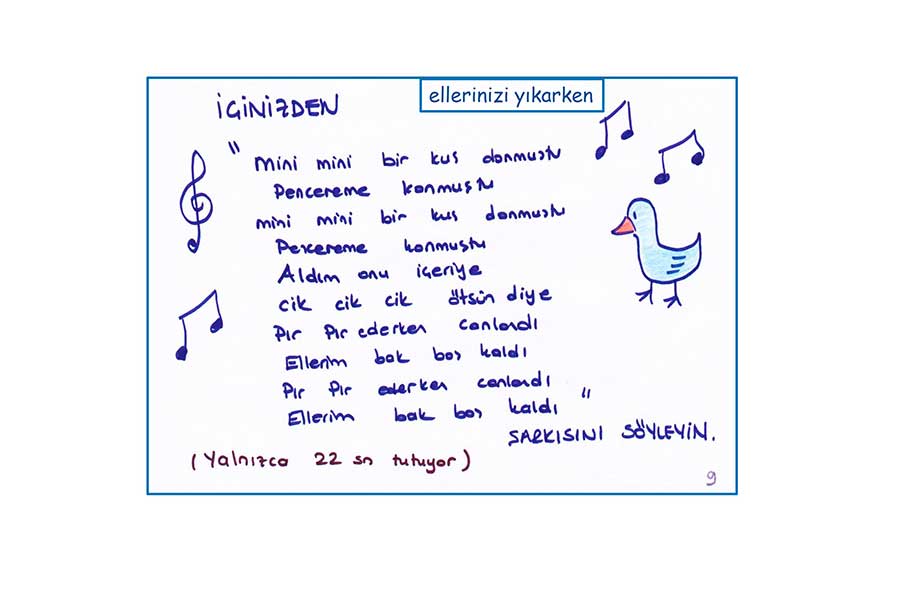 ellerinizi yıkarken
İÇİNİZDEN
"Mini mini bir kuş donmuştu
Pencereme konmuştu
mini mini bir kuş donmuştu
Pencereme konmuştu
Aldım onu içeriye
cik cik cik ötsün diye
Pır Pır ederken canlandı
Ellerim bak boş kaldı
Pır Pır ederken canlandı
Ellerim bak boş kaldı"
ŞARKISINI SÖYLEYİN.
(Yalnızca 22 sn tutuyor)
9